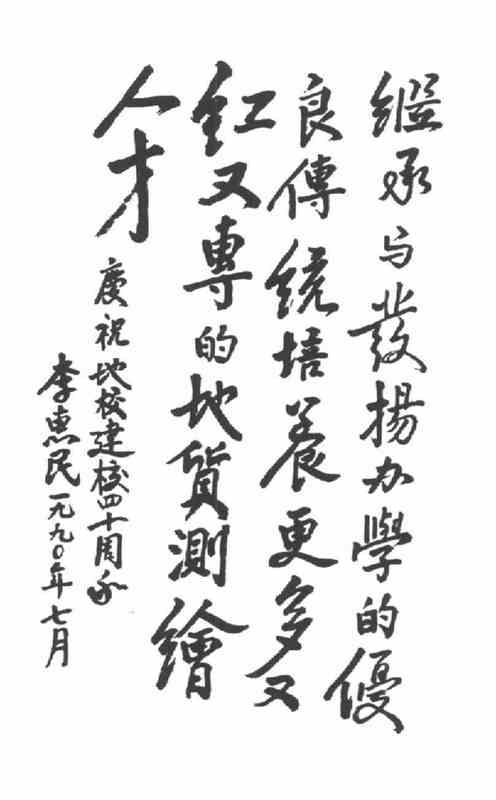 繼承与發揚办學的優
良傳統培養更多又
紅又專的地質測繪
人才
慶祝地校建校四十周年
李惠民一九九〇年七月